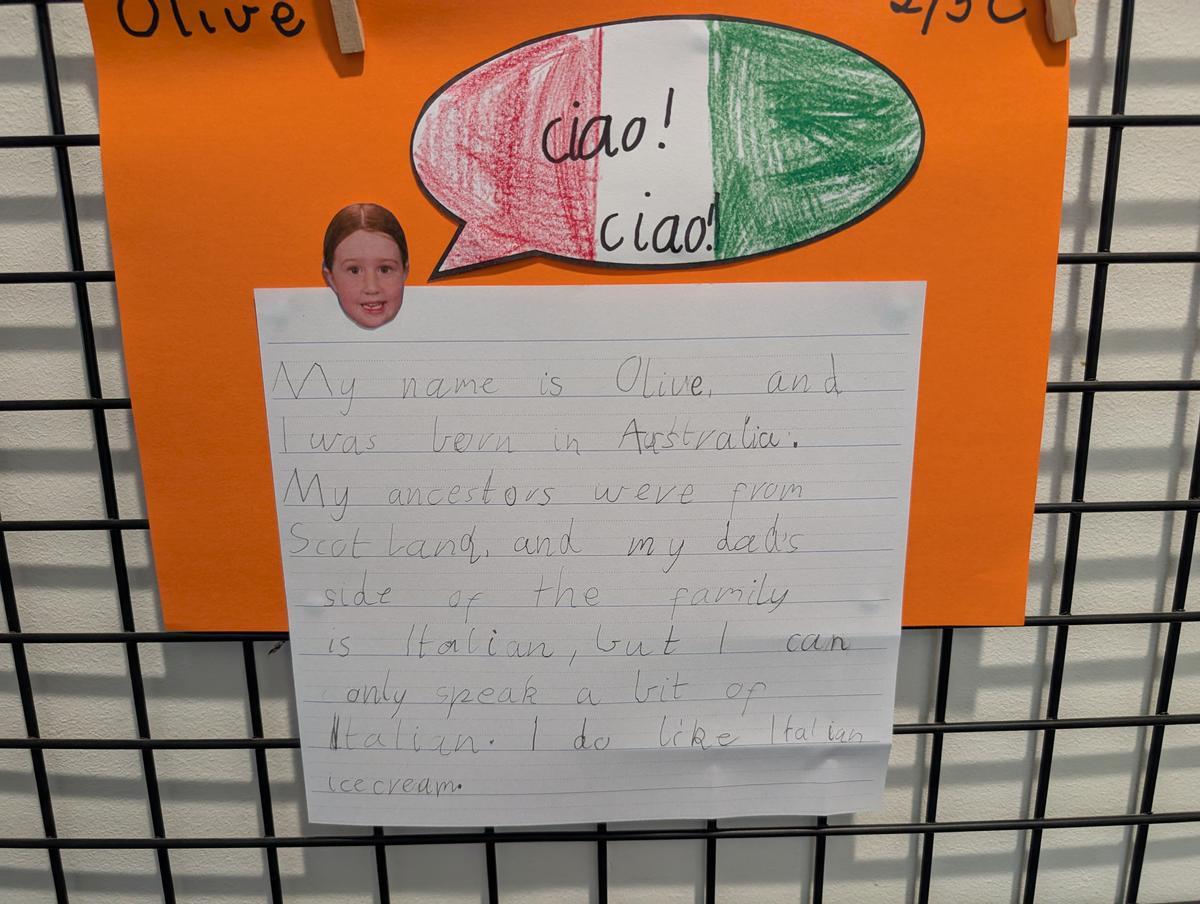 Olive 2/3C
ciao!
ciao!
My name is Olive, and
I was born in Australia.
My ancestors were from
Scotland, and my dad's
side of the family
is Italian, but I can
only speak a bit of
Italian. I do like Italian
icecream.